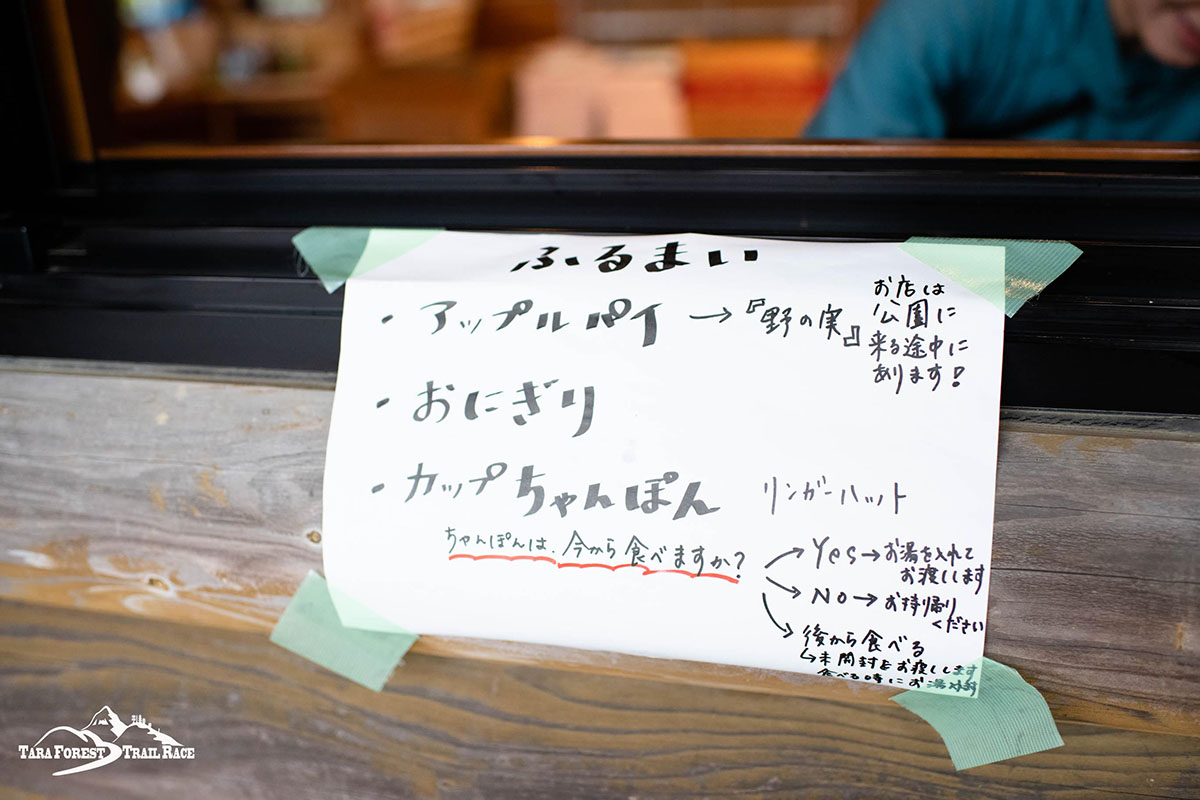 ふるまい
・アップルパイ→『野の実』
お店は
公園に
来る途中に
あります!
・おにぎり
・カップちゃんぽん リンガーハット
ちゃんぽんは、今から食べますか?
Yes→お湯を入れて
お渡しします
No→お持ち帰り
ください
後から食べる
↳未開封をお渡しします
食べる時にお湯
TARA FOREST TRAIL RACE